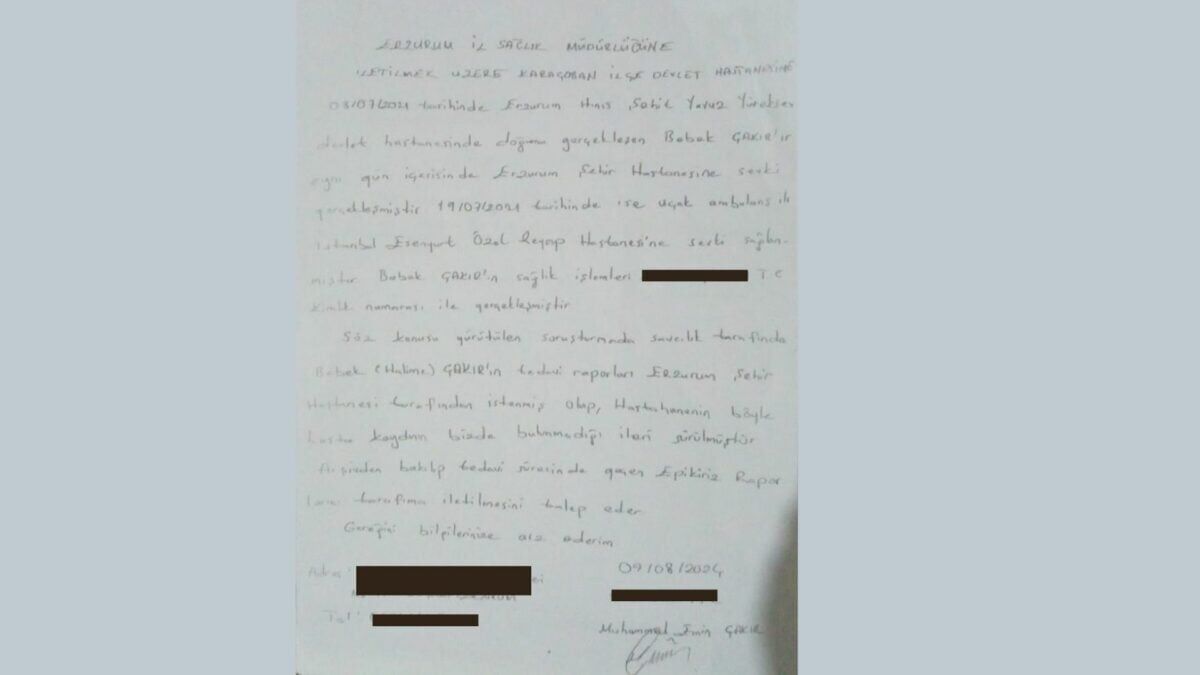 ERZURUM İL SAĞLIK MÜDÜRLÜĞÜNE
İLETİLMEK ÜZERE KARAÇOBAN İLÇE DEVLET HASTANESİNE
03/07/2021 tarihinde Erzurum Hınıs Şehit Yavuz Yürekseven
devlet hastanesinde doğumu gerçekleşen Bebek ÇAKIR'ın
aynı gün içerisinde Erzurum Şehir Hastanesine sevki
gerçekleşmiştir 19/07/2021 tarihinde ise uçak ambulans ile
istanbul Esenyurt Özel Reyap Hastanesi'ne sevki sağlan-
mıştır Bebek ÇAKIR'ın sağlık işlemleri T C
Kimlik numarası ile gerçekleşmiştir
Söz konusu yürütülen soruşturmada savcılık tarafında
Bebek (Halime) ÇAKIR'ın tedavi raporları Erzurum Şehir
Hastanesi tarafından istenmiş olup, Hastahanenin böyle
hasta kaydının bizde bulunmadığı ileri sürülmüştür
Arşivden bakılıp tedavi süresinde geçen Epikiriz Rapor
ları tarafıma iletilmesini talep eder
Gereğini bilgilerinize arz ederim
Adres
09/08/2024
Tel:
Muhammed Emin ÇAKIR